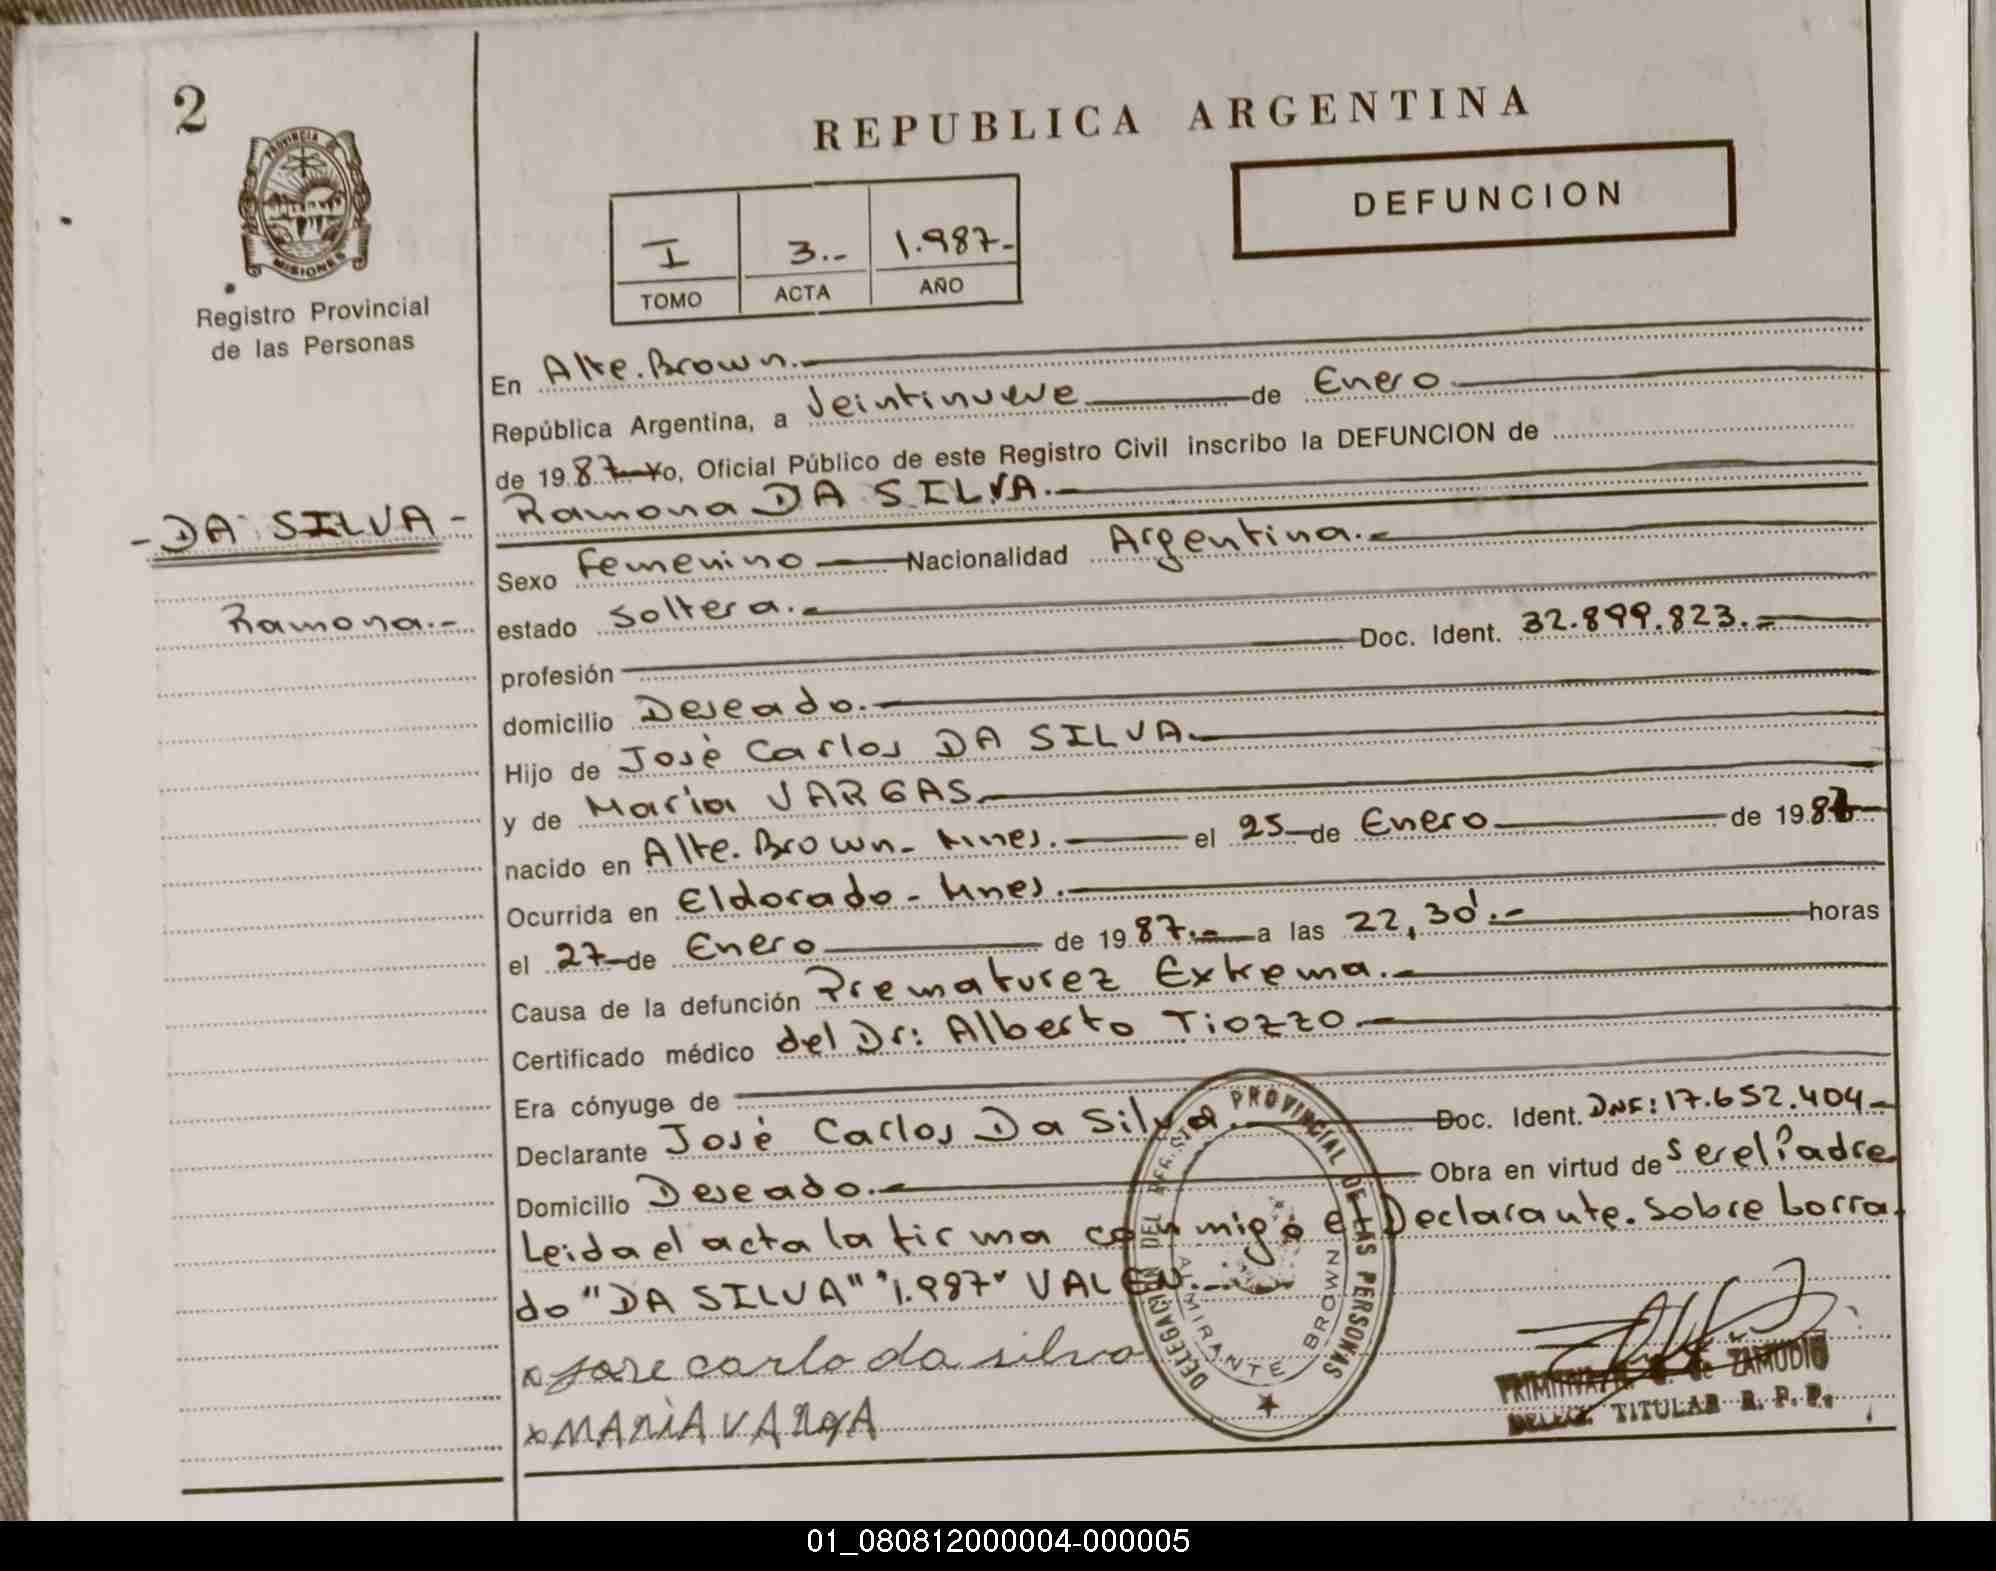 2
PROVINCIA DE
MISIONES
Registro Provincial
de las Personas
REPUBLICA ARGENTINA
DEFUNCION
I 3.- 1.987-
TOMO ACTA AÑO
En Alte. Brown.-
República Argentina, a Veintinueve de Enero
de 1987 Yo, Oficial Público de este Registro Civil inscribo la DEFUNCION de
- DA SILVA -
Ramona.-
Ramona DA SILVA.-
Sexo Femenino Nacionalidad Argentina.-
estado Soltera.-
profesión Doc. Ident. 32.899.823.=
domicilio Deseado.-
Hijo de José Carlos DA SILVA.
y de María VARGAS.
nacido en Alte. Brown - Mnes. el 25 de Enero de 1987
Ocurrida en Eldorado - Mnes.
el 27 de Enero de 1987.- a las 22,30'.- horas
Causa de la defunción Prematurez Extrema.-
Certificado médico del Dr: Alberto Tiozzo
Era cónyuge de
Declarante José Carlos Da Silva. Doc. Ident. DNI: 17.652.404-
Domicilio Deseado.- Obra en virtud de ser el Padre
Leida el acta la firma conmigo el Declarante. Sobre borra
do "DA SILVA" "1.987" VALEN.-
x Jose carlo da silva
x MARIA VARgA
DELEGACION DEL REGISTRO PROVINCIAL DE LAS PERSONAS
ALMIRANTE BROWN
PRIMITIVA de ZAMUDIO
DELEG. TITULAR R. P. P.
01_080812000004-000005